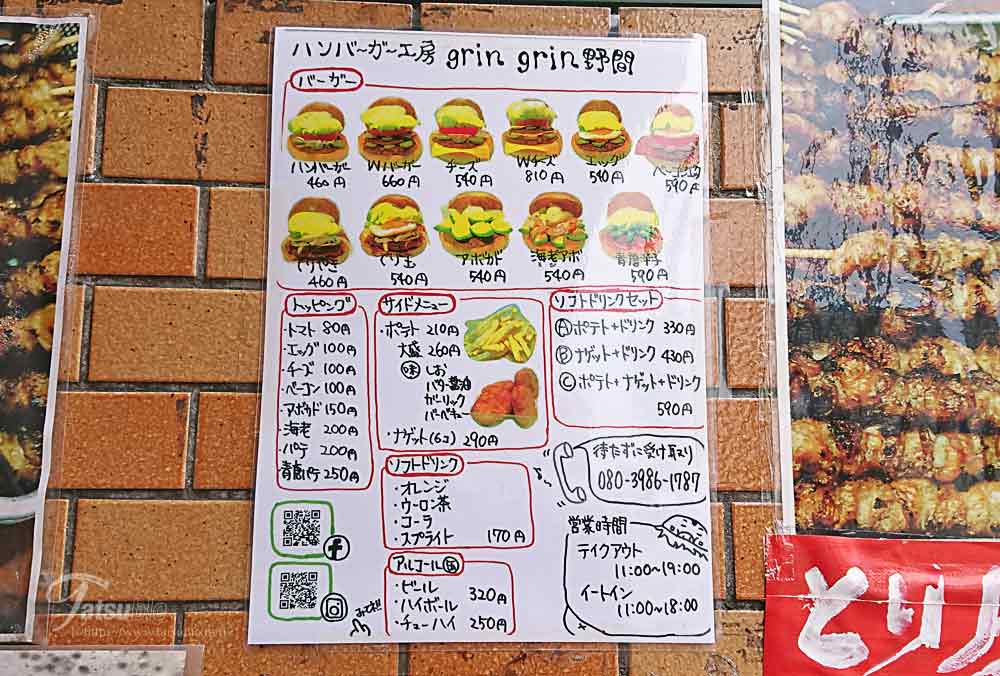 ハンバーガー工房 grin grin 野間
バーガー
ハンバーガー 460円
Wバーガー 660円
チーズ 540円
Wチーズ 810円
エッグ 540円
ベーコンエッグ 590円
てりやき 460円
てり玉 540円
アボカド 540円
海老アボ 540円
青唐辛子 590円
トッピング
・トマト 80円
・エッグ 100円
・チーズ 100円
・ベーコン 100円
・アボカド 150円
・海老 200円
・パテ 200円
青唐パテ 250円
サイドメニュー
・ポテト 210円
大盛 260円
味 しお
バター醤油
ガーリック
バーベキュー
・ナゲット(6コ) 290円
ソフトドリンクセット
Ⓐポテト+ドリンク 330円
Ⓑナゲット+ドリンク 430円
Ⓒポテト+ナゲット+ドリンク
590円
ソフトドリンク
・オレンジ
・ウーロン茶
・コーラ
・スプライト 170円
アルコール 缶
・ビール 320円
・ハイボール
・チューハイ 250円
待たずに受け取り
080-3986-1787
営業時間
テイクアウト
11:00~19:00
イートイン
11:00~18:00
みてネ!!
Tatsu
とり